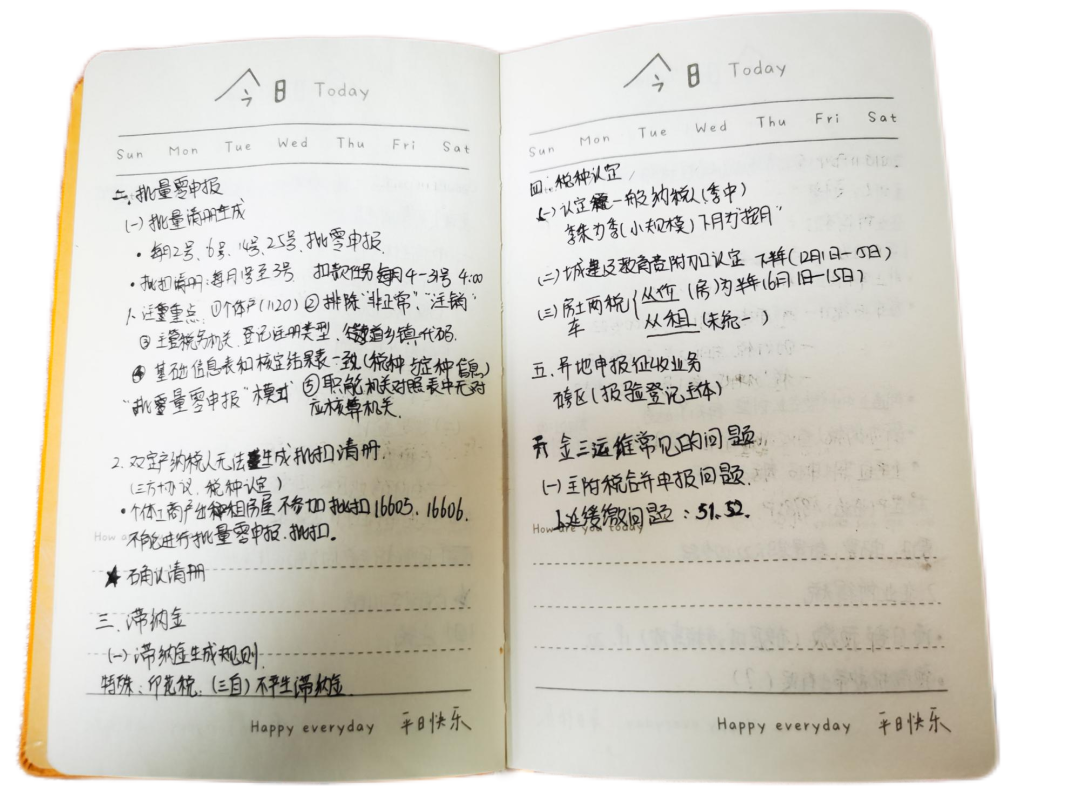 今日 Today
Sun Mon Tue Wed Thu Fri Sat
二、批量零申报
(一) 批量清册生成
• 每月2号、6号、14号、25号、批零申报.
• 批扣清册:每月1号至3号 扣款任务每月4-31号 4:00
注意重点 ①个体户(1120) ②排除"非正常"、"注销"
③ 主管税务机关、登记注册类型、街道乡镇代码.
④ 基础信息表和核定结果表一致(税种与定种信息)
"批量零申报"模式 ⑤职能机关对照表中无对
应核算机关.
2. 双定户纳税人无法生成批扣清册.
(三方协议、税种认定)
• 个体工商户出租房屋不参加批扣16605、16606.
不能进行批量零申报、批扣。
How a
★ 确认清册
三、滞纳金
(一) 滞纳金生成规则.
特殊:印花税、(三自)不产生滞纳金.
Happy everyday 平日快乐
今日 Today
Sun Mon Tue Wed Thu Fri Sat
四、税种认定
(一) 认定一般纳税人(季中)
季末为季(小规模)下月为"按月"
(二) 城建及教育费附加认定 下半年(12月1日-15日)
(三) 房土两税 从价(房)为半年(6月1日-15日)
车 从租(未统一)
五、异地申报征收业务
跨区(报验登记主体)
六 金三运维常见的问题.
(一) 主附税合并申报问题.
1.延缓缴问题:51.52.
How are you today
Happy everyday 平日快乐